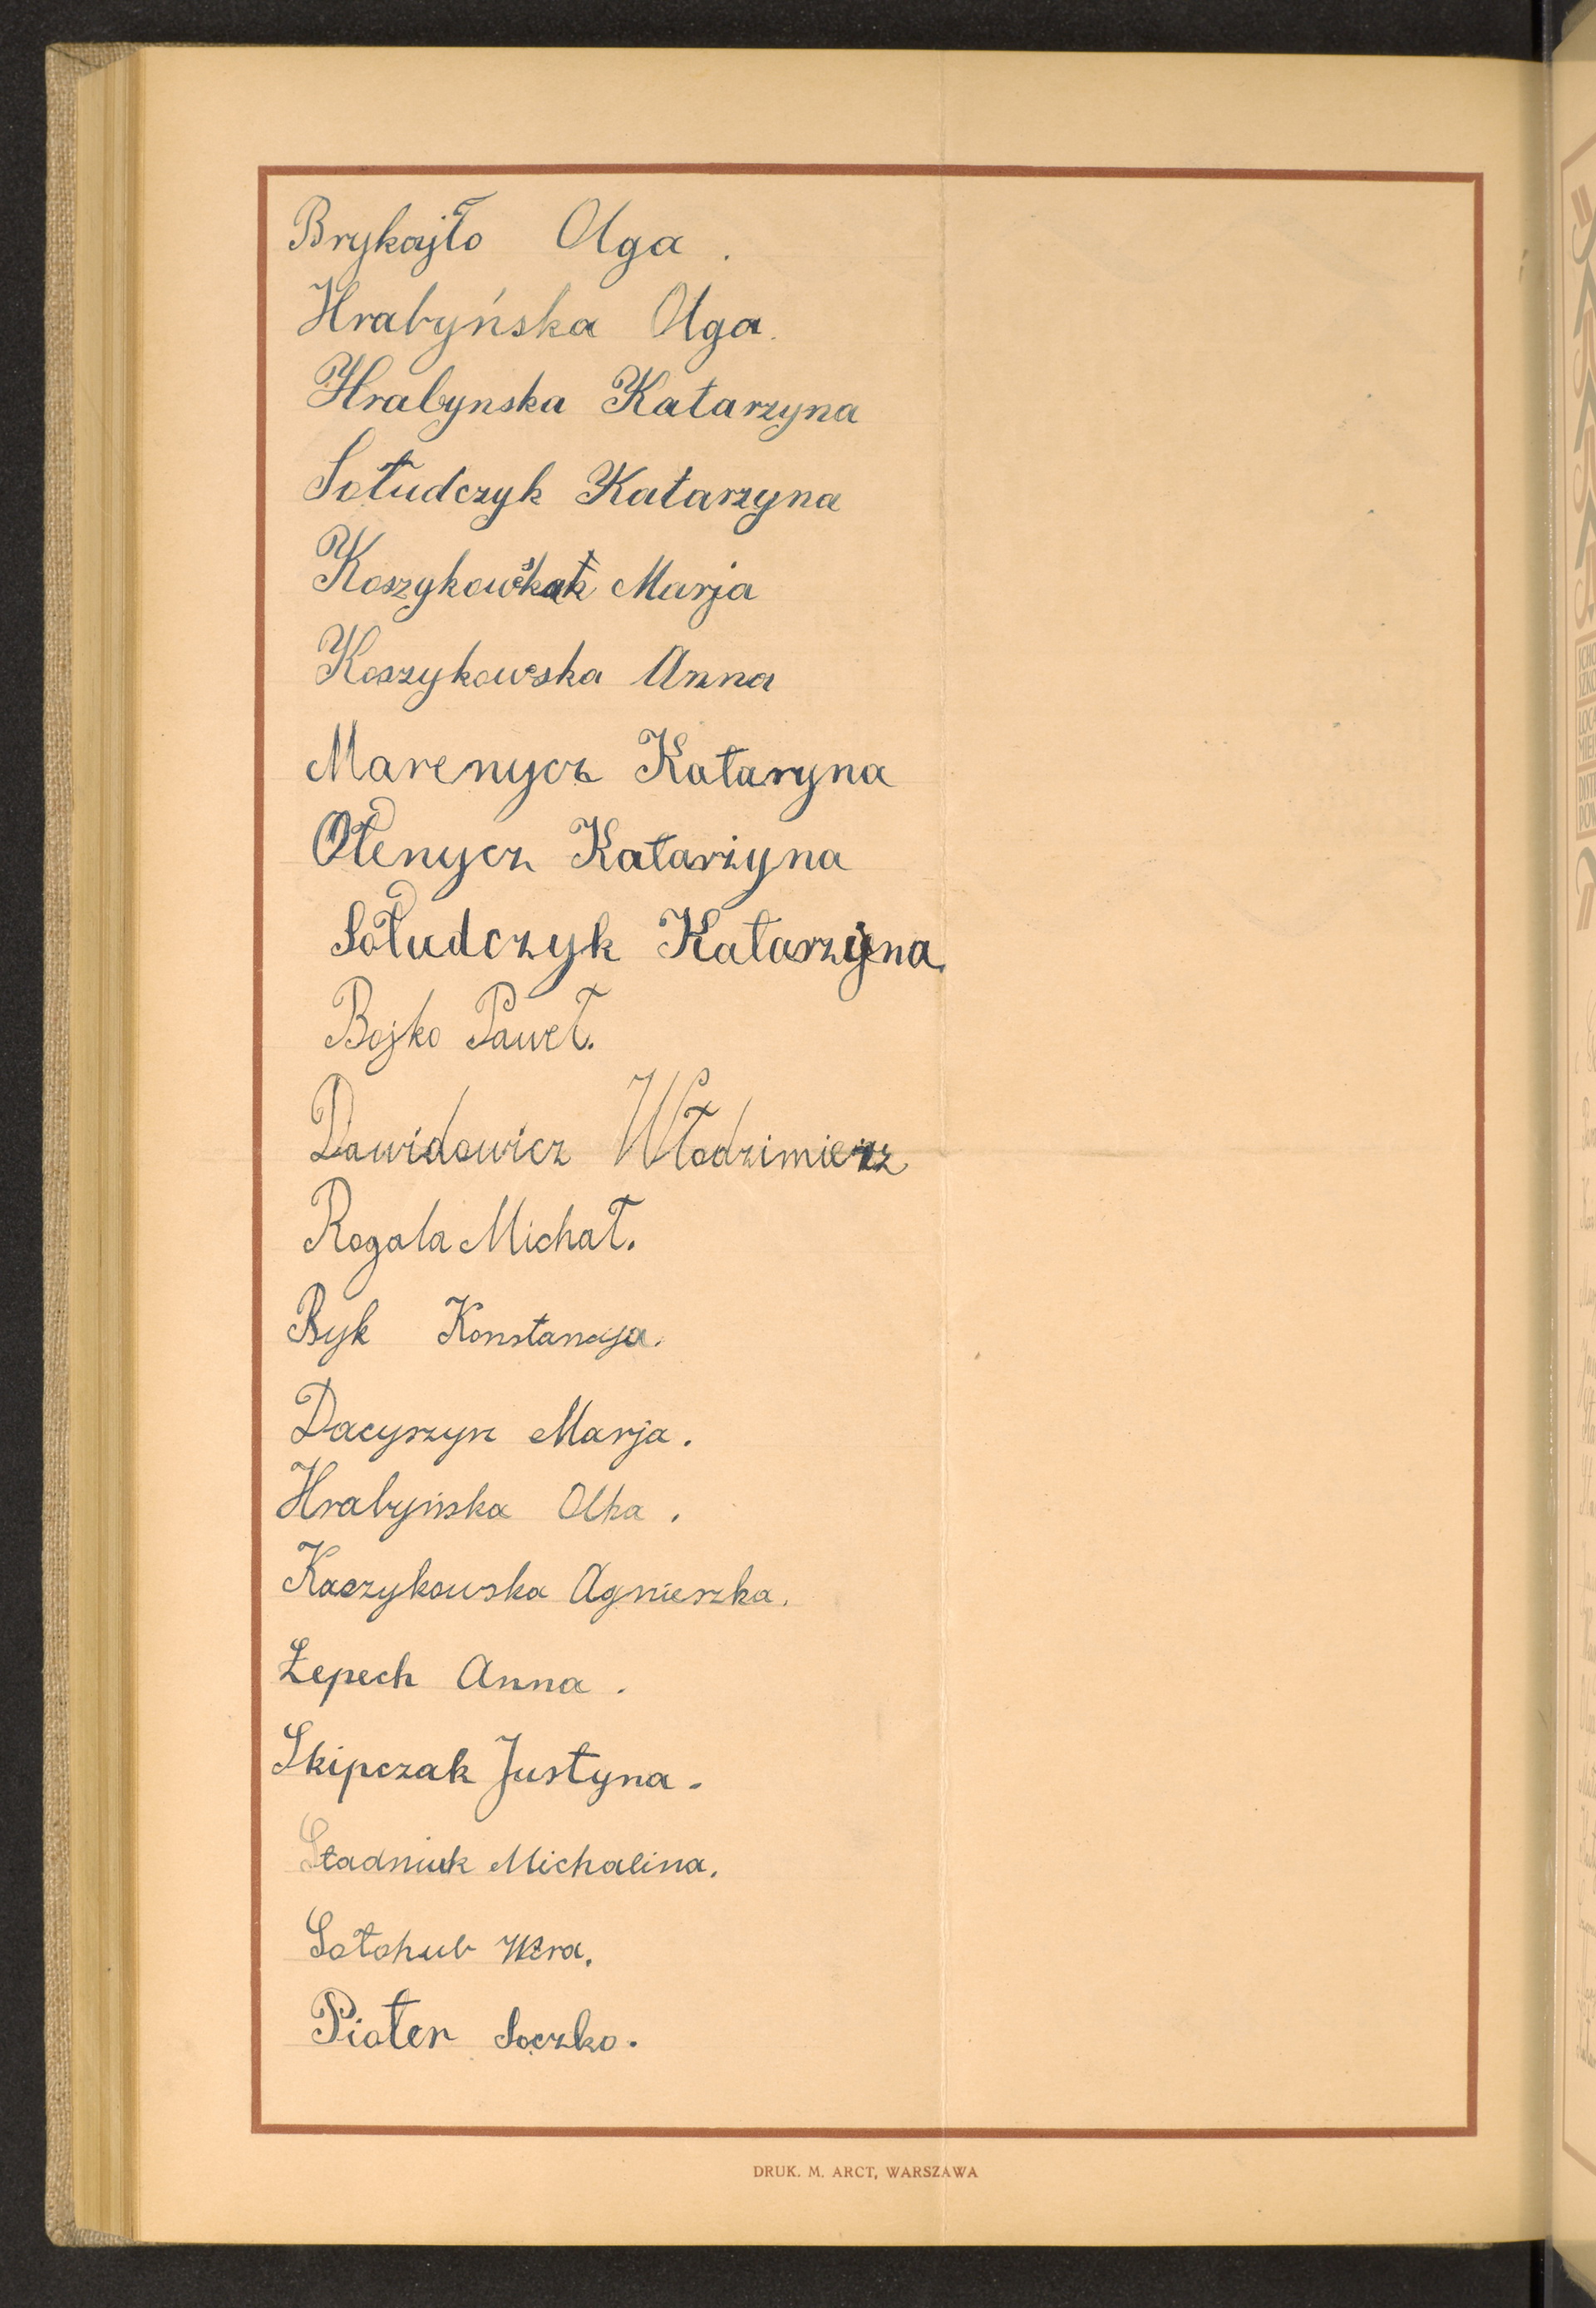 Brykajło Olga.
Hrabyńska Olga.
Hrabynska Katarzyna
Sołudczyk Katarzyna
Marja
Koszykowska Anna
Marenycz Kataryna
Ołenycz Katarzyna
Sołudczyk Katarzyna
Bojko Paweł.
Dawidowicz Włodzimierz
Rogala Michał.
Byk Konstancja.
Dacyszyn Marja.
Hrabyńska Olha.
Kaszykowska Agnieszka.
Łepech Anna.
Skipczak Justyna.
Stadniuk Michalina.
Sołohub Wera.
Pioter Soczko.
DRUK. M. ARCT, WARSZAWA